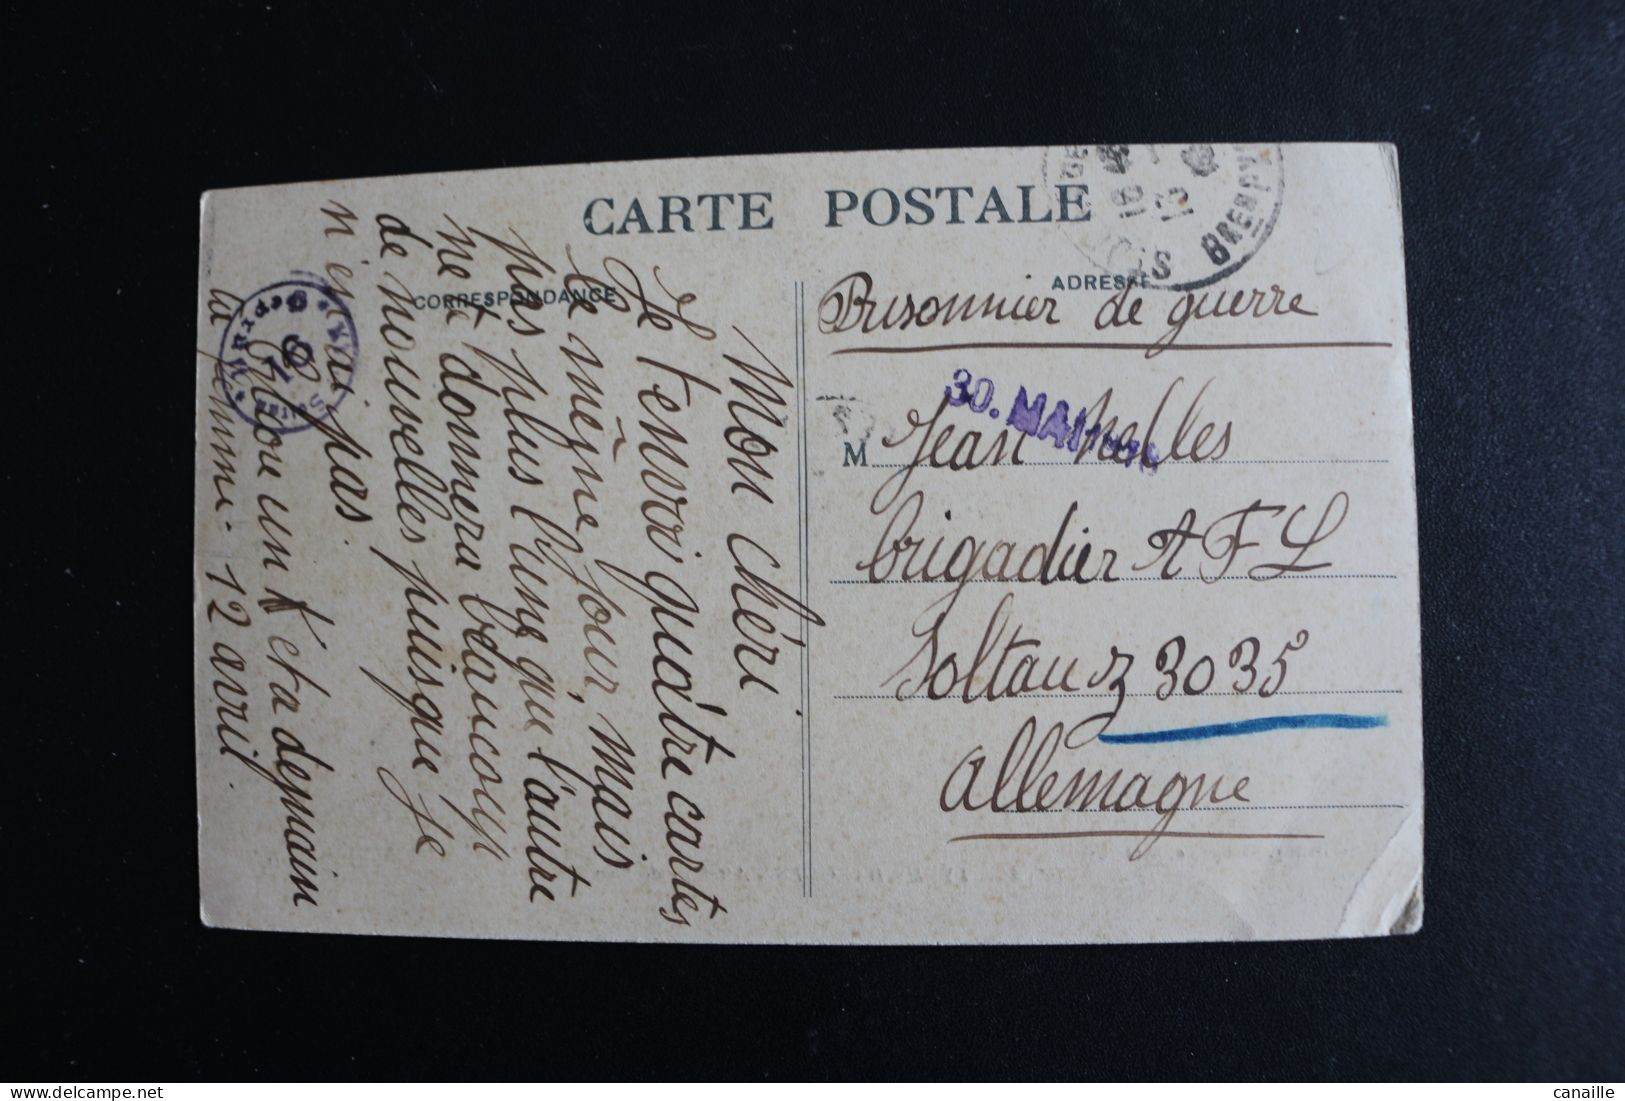 CARTE POSTALE
CORRESPONDANCE
ADRESSE
Mon chéri
Je t'envoi quatre cartes
le même jour, mais
pas plus l'une qu l'autre
ne t donnera beaucoup
de nouvelles puisque je
n'en ai pas.
Encore un et à demain
la femme. 12 avril.
Prisonnier de guerre
30. MAI
M Jean Nelles
brigadier A F L
Soltau z 3035
Allemagne
canaille